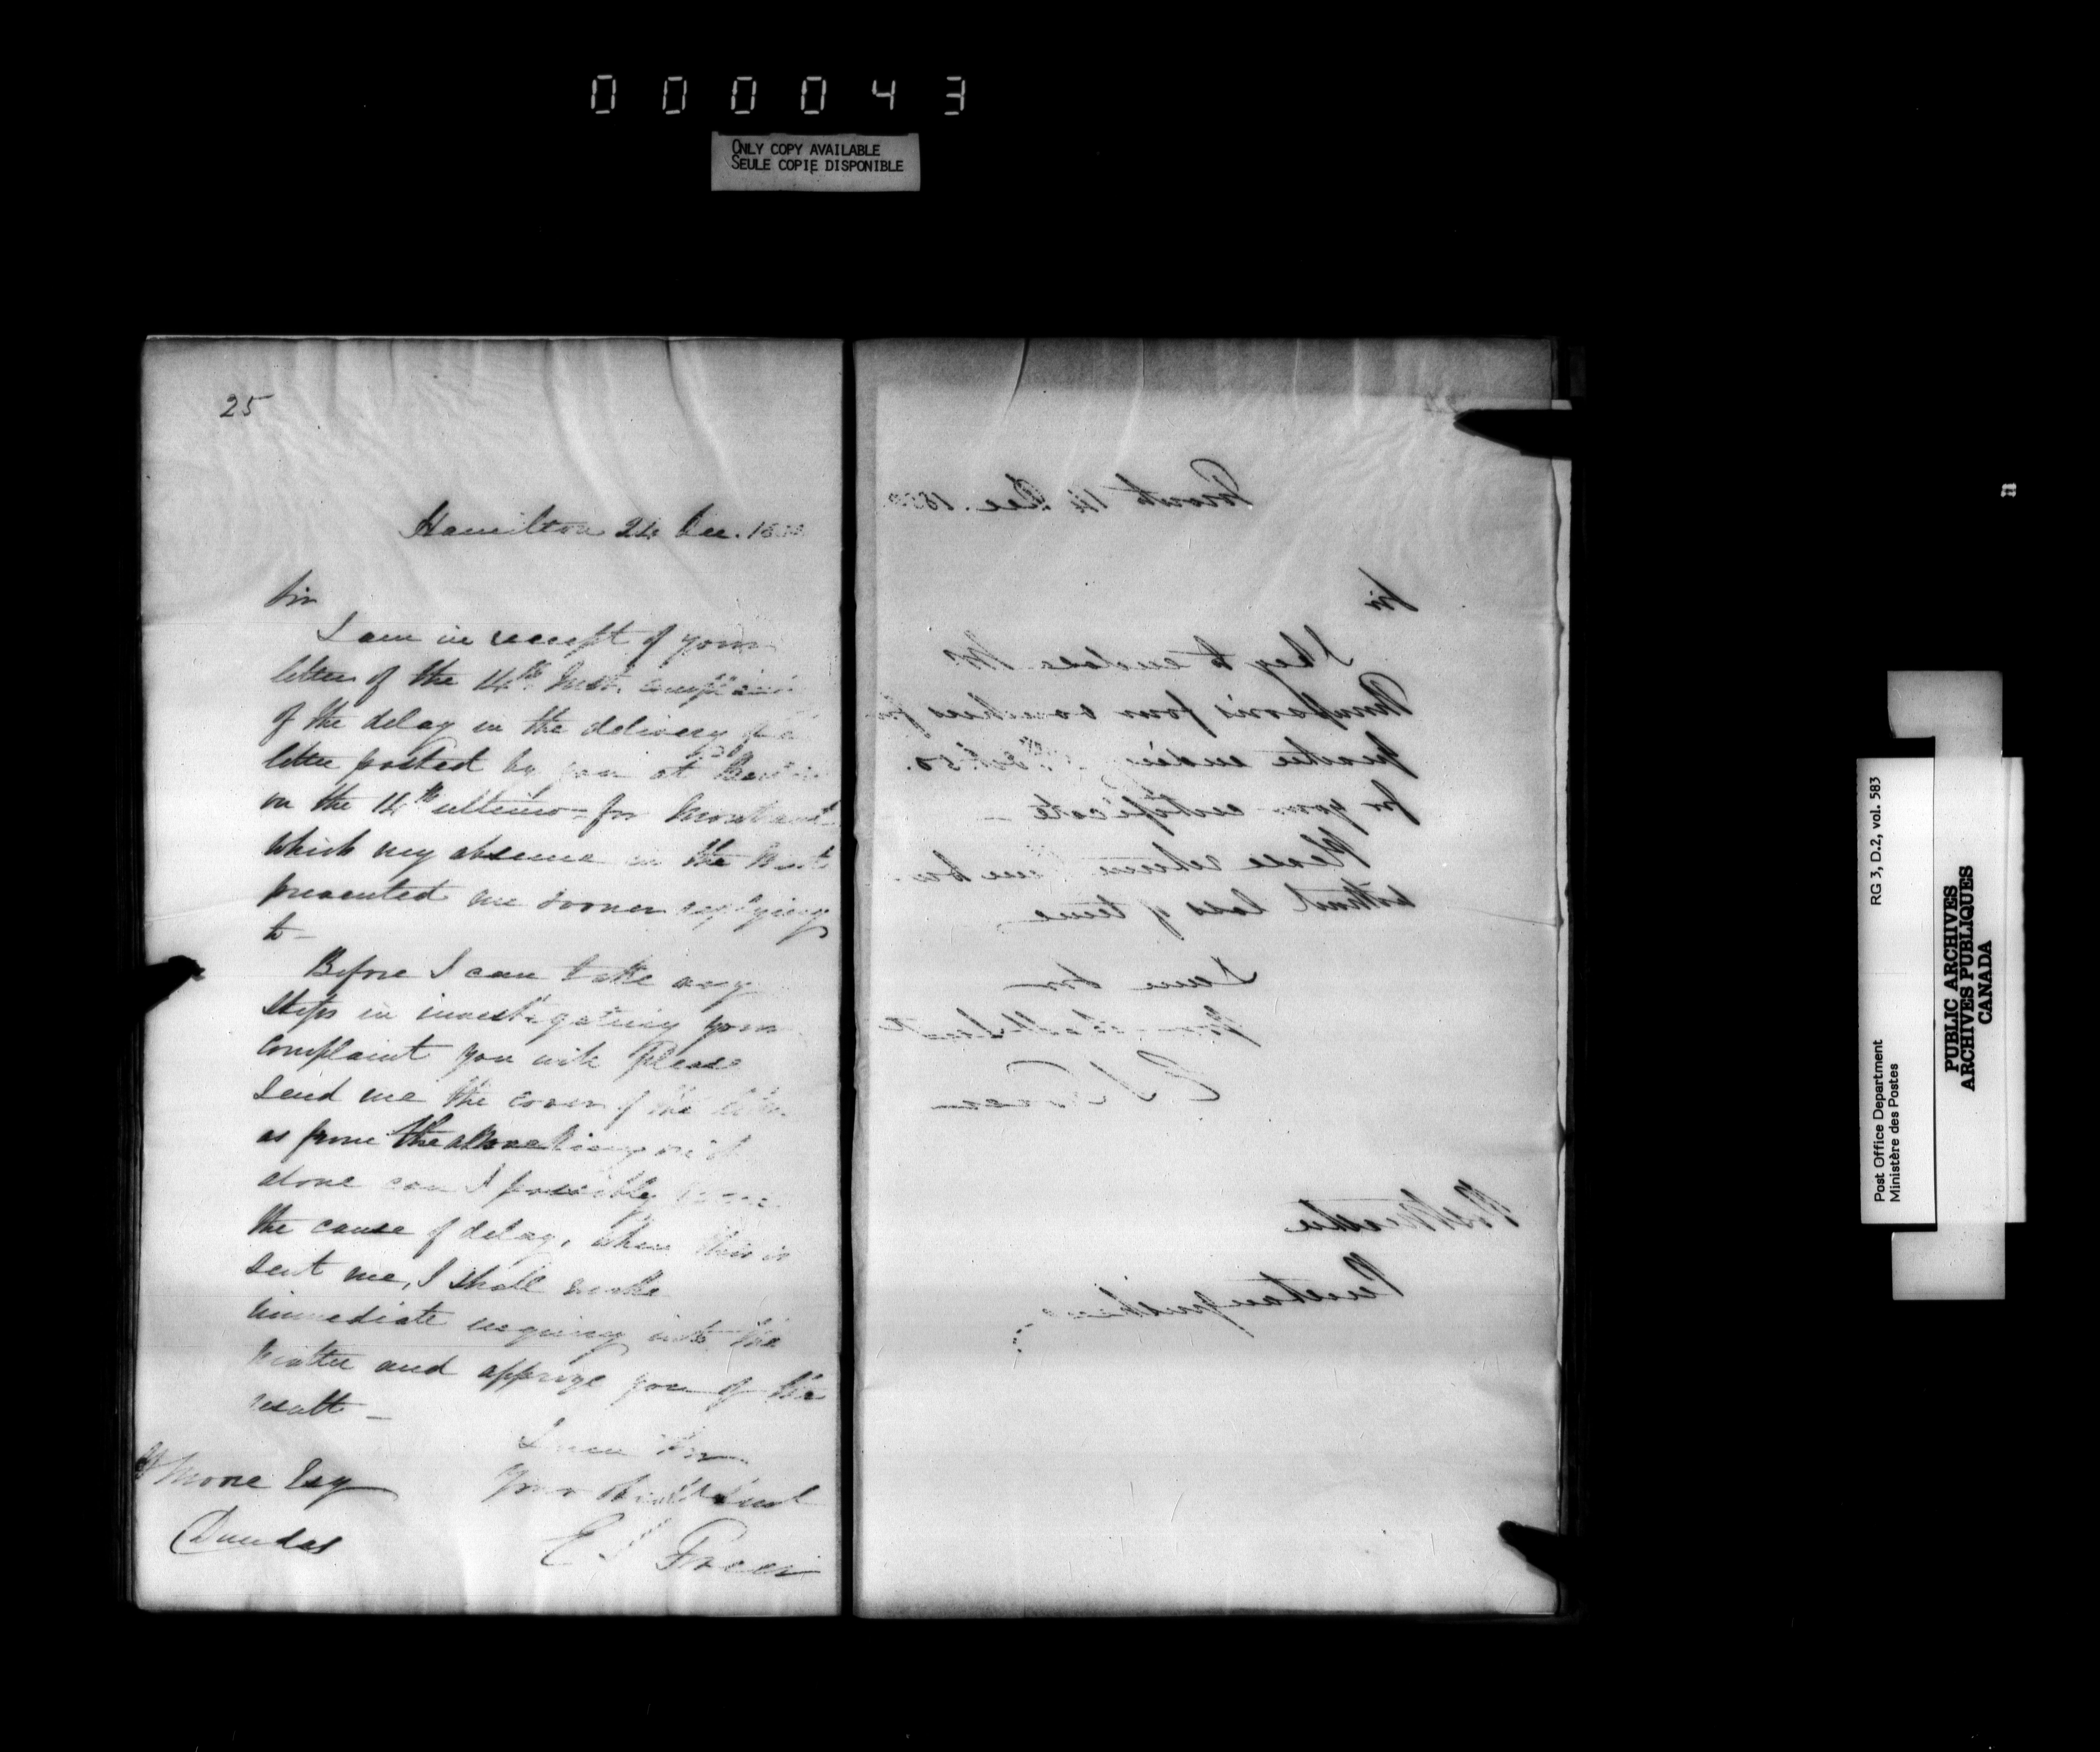 000043
ONLY COPY AVAILABLE
SEULE COPIE DISPONIBLE
25
Hamilton 24 Dec. 18
Sir
I am in receipt of your
letter of the 14th Inst.
of the delay in the delivery of a
letter posted by you at
on the 14th ultimo - for
which my absence in the
prevented me sooner replying
to -
Before I can take any
steps in investigating your
complaint you will please
send me the cover of the letter
as from the
alone can I possibly
the cause of delay, when this is
sent me, I shall make
immediate inquiry into the
matter and apprize you of the
result -
I am Sir
Your Obedt Servt
E S Freer
Moore Esq
Dundas
14 Dec. 18
Sir
I beg to enclose Mr
Thompson's four vouchers for
quarter ending 5th Oct. 50.
for your certificate -
Please return
without loss of time
I am Sir
Your Obedt Servt
E S Freer
Postmaster
Penetanguishene
RG 3, D.2, vol. 583
Post Office Department
Ministère des Postes
PUBLIC ARCHIVES
ARCHIVES PUBLIQUES
CANADA